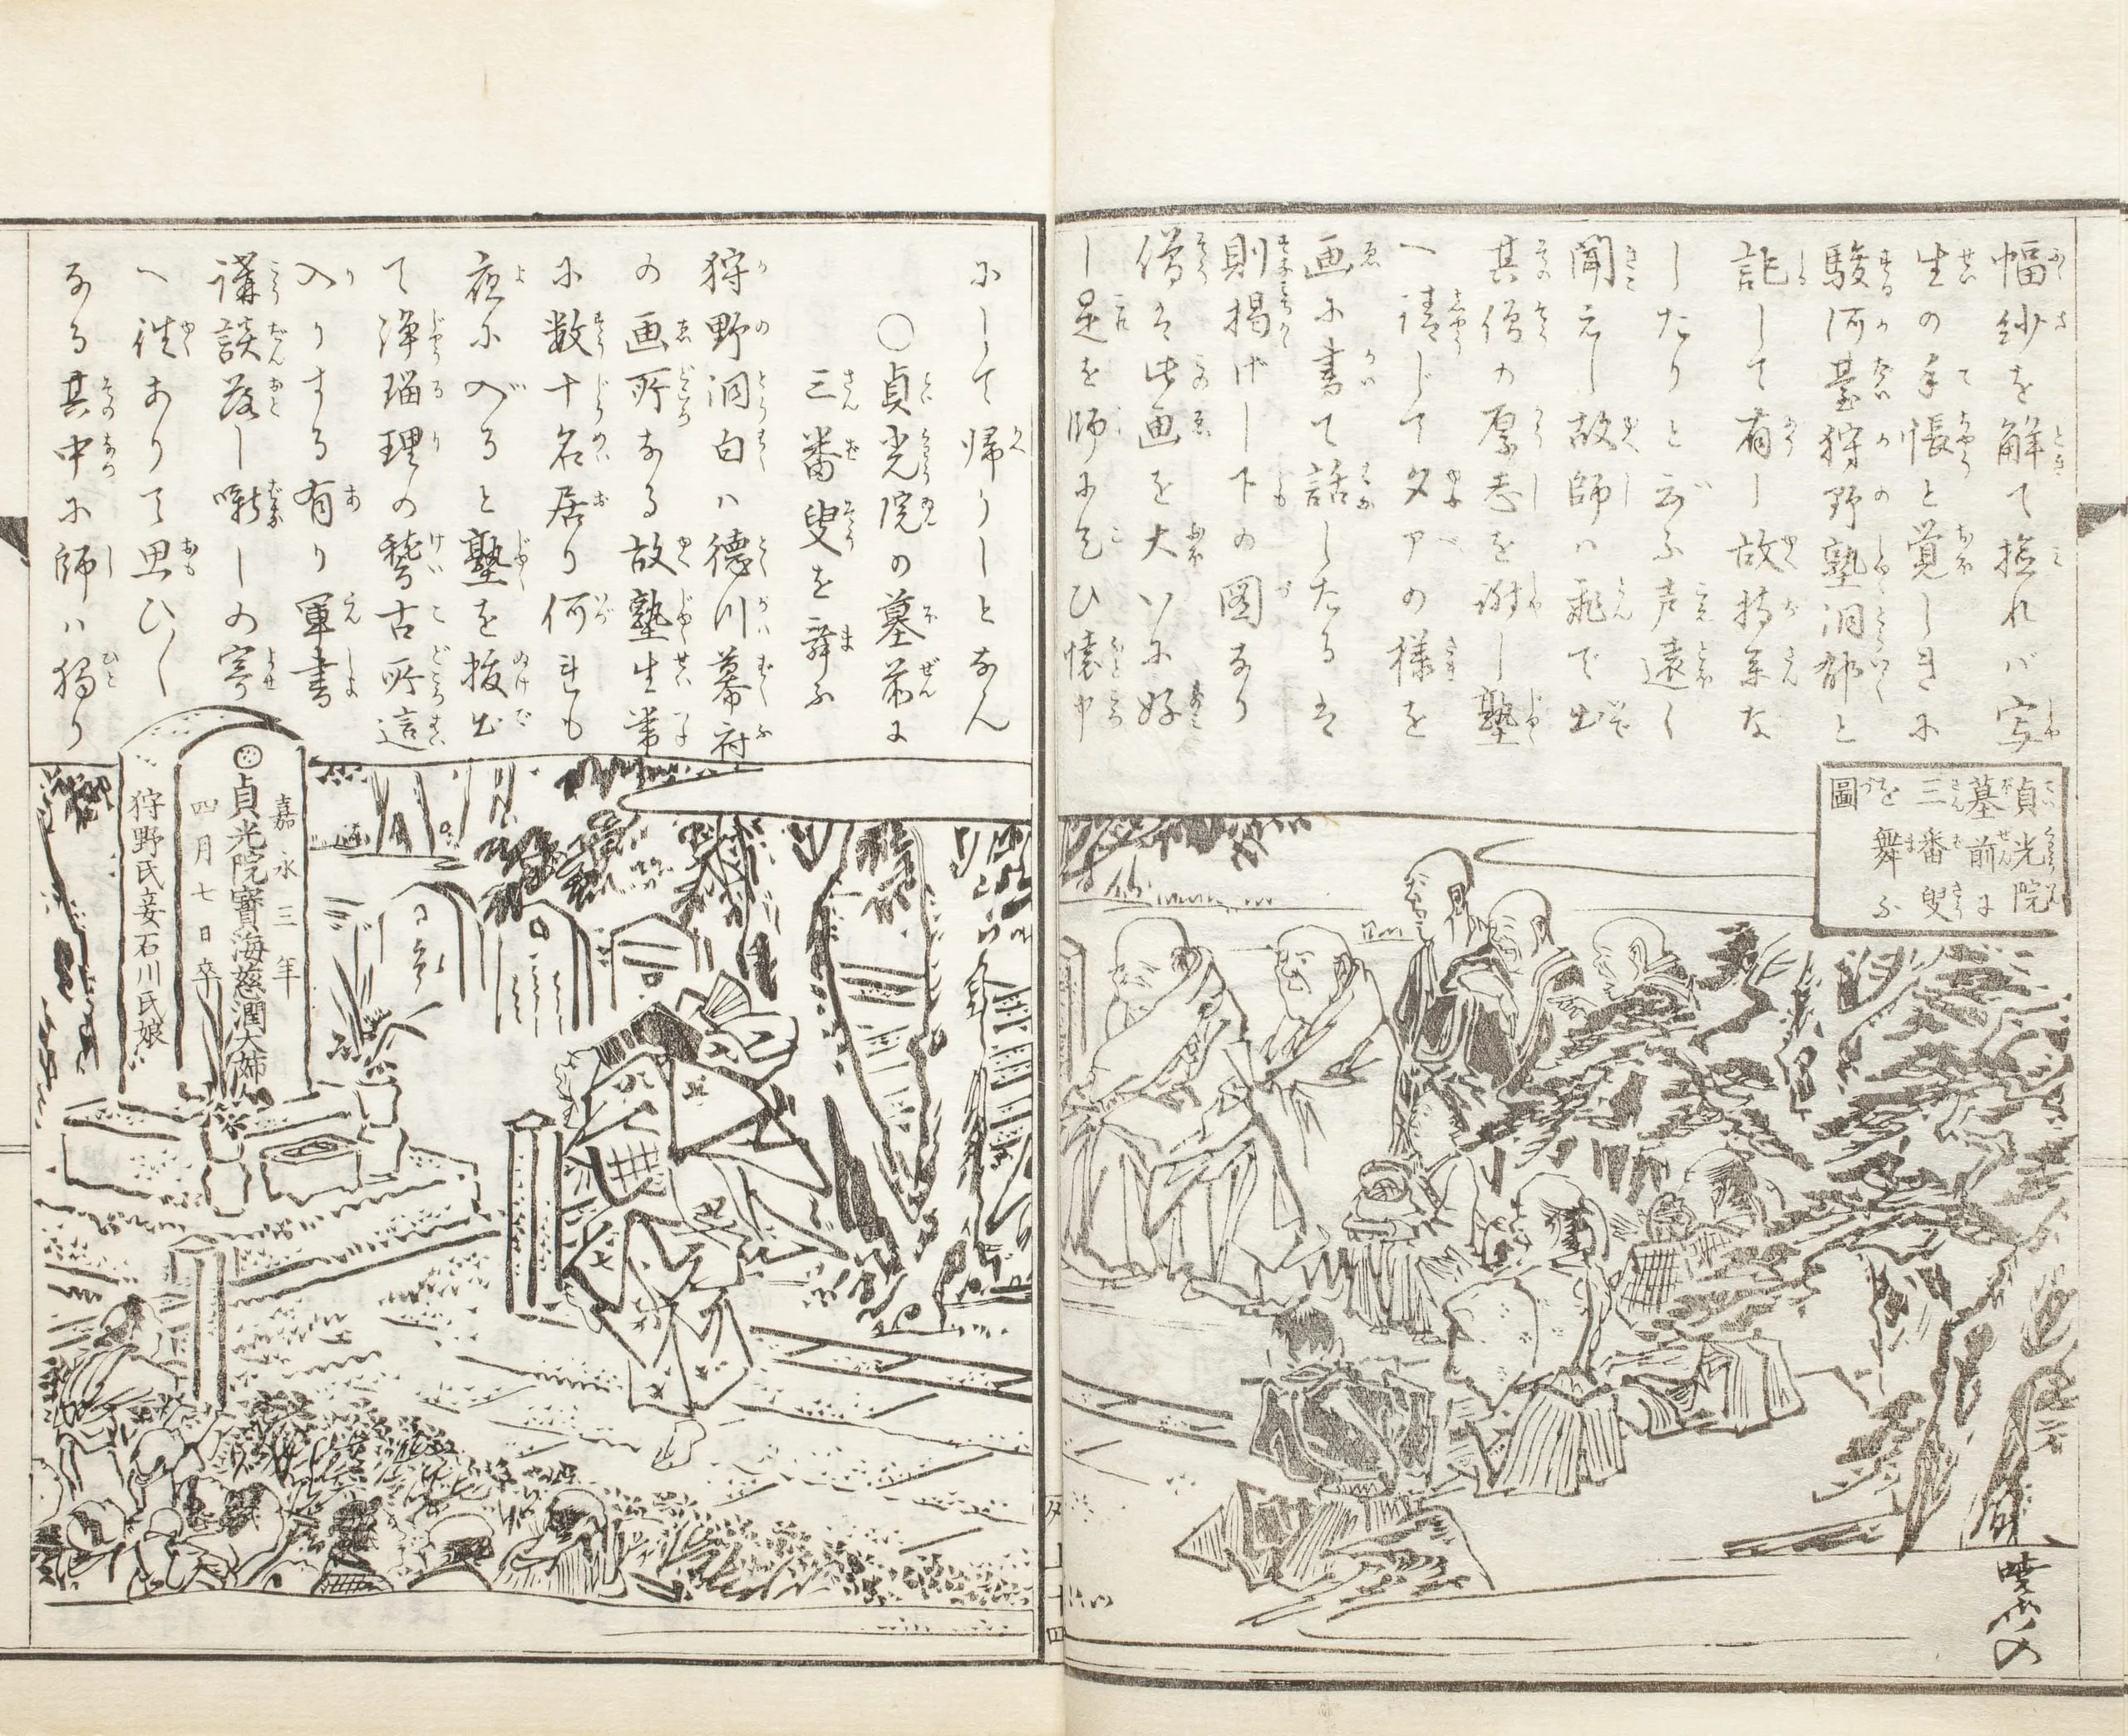 幅紗を解て撿れバ写
生の手帳と覚しきに
駿河臺狩野塾洞郁と
記して有し故持系な
したりと云ふ声遠く
聞えし故師ハ飛で出
其僧の厚志を謝し塾
へ請じて夕アの様を
画に書て話したるを
則掲げし下の図なり
僧を此画を大いに好
し是を師に乞ひ懐中
貞光院
墓前に
三番叟
を舞ふ
圖
暁斎
にして帰りしとなん
〇貞光院の墓前に
三番叟を舞ふ
狩野洞白ハ徳川幕府
の画所なる故塾生常
に数十名居り何れも
夜に入ると塾を抜出
て浄瑠理の稽古所這
入りする有り軍書
講談落し噺しの寄
へ徃ありて思ひ〱
なる其中に師ハ独り
嘉永三年
貞光院寳海慈潤大姉
四月七日卒
狩野氏妾石川氏娘